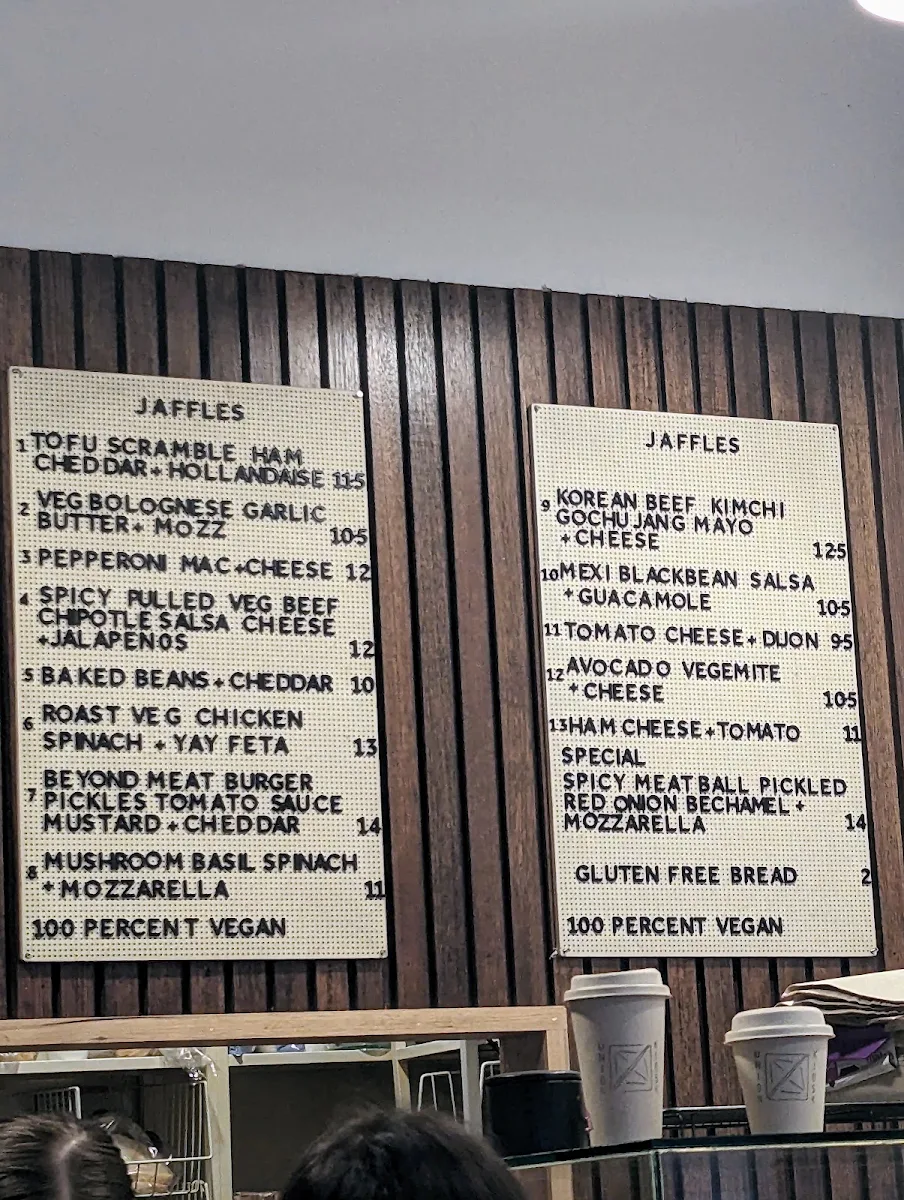 JAFFLES
1 TOFU SCRAMBLE HAM
CHEDDAR + HOLLANDAISE 11·5
2 VEG BOLOGNESE GARLIC
BUTTER + MOZZ 10·5
3 PEPPERONI MAC + CHEESE 12
4 SPICY PULLED VEG BEEF
CHIPOTLE SALSA CHEESE
+ JALAPENOS 12
5 BAKED BEANS + CHEDDAR 10
6 ROAST VEG CHICKEN
SPINACH + YAY FETA 13
7 BEYOND MEAT BURGER
PICKLES TOMATO SAUCE
MUSTARD + CHEDDAR 14
8 MUSHROOM BASIL SPINACH
+ MOZZARELLA 11
100 PERCENT VEGAN
JAFFLES
9 KOREAN BEEF KIMCHI
GOCHUJANG MAYO
+ CHEESE 12·5
10 MEXI BLACKBEAN SALSA
+ GUACAMOLE 10·5
11 TOMATO CHEESE + DIJON 9·5
12 AVOCADO VEGEMITE
+ CHEESE 10·5
13 HAM CHEESE + TOMATO 11
SPECIAL
SPICY MEATBALL PICKLED
RED ONION BECHAMEL +
MOZZARELLA 14
GLUTEN FREE BREAD 2
100 PERCENT VEGAN